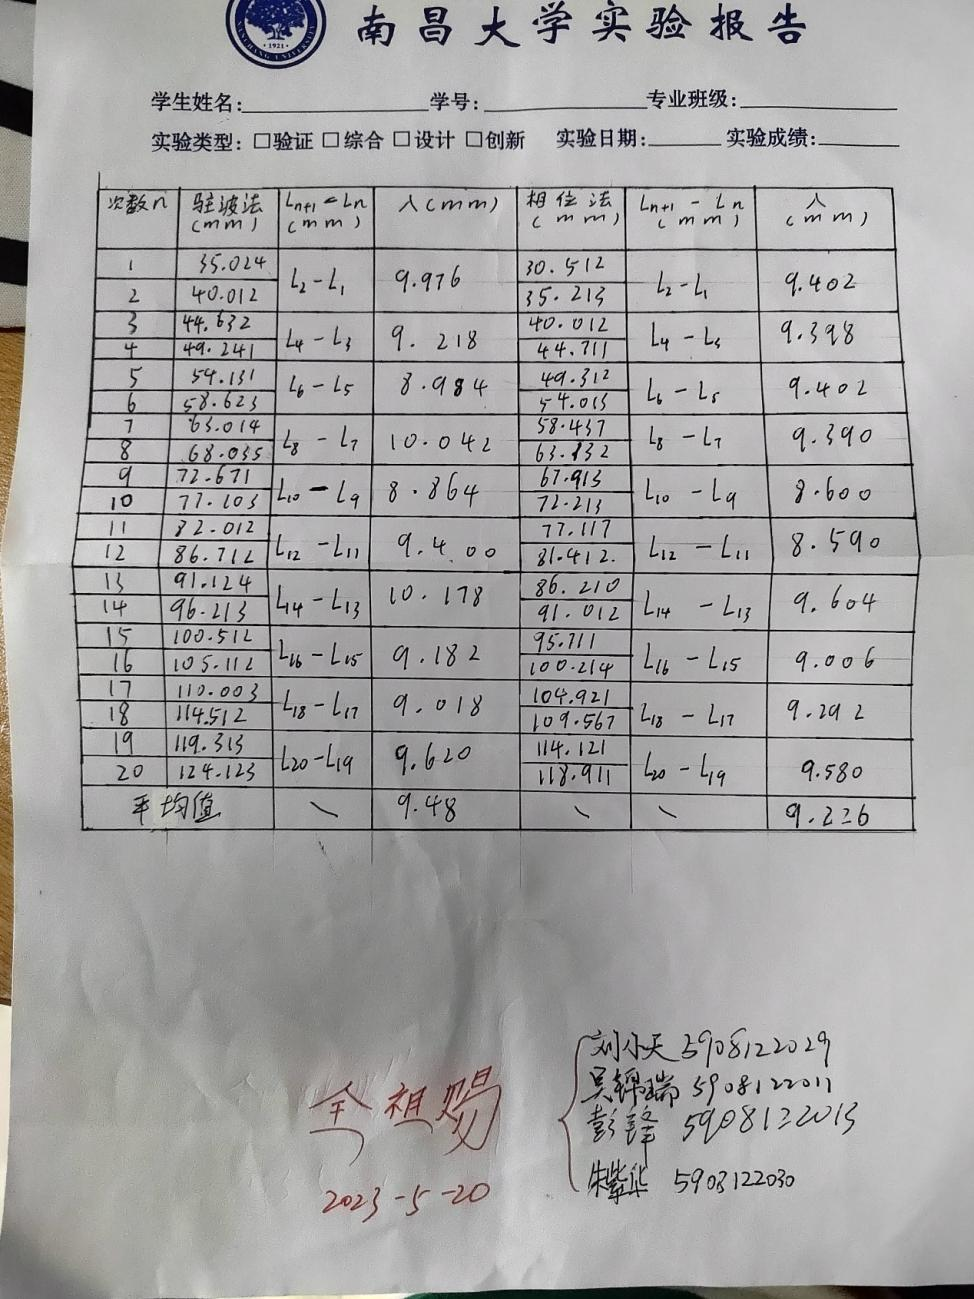 NANCHANG UNIVERSITY
· 1921 ·
南昌大学实验报告
学生姓名: 学号: 专业班级:
实验类型: □验证 □综合 □设计 □创新 实验日期: 实验成绩:
次数n 驻波法(mm) Ln+1 - Ln (mm) λ(mm) 相位法(mm) Ln+1 - Ln (mm) λ(mm)
1 35.024 L2-L1 9.976 30.512 L2-L1 9.402
2 40.012 35.213
3 44.632 L4-L3 9.218 40.012 L4-L3 9.398
4 49.241 44.711
5 54.131 L6-L5 8.984 49.312 L6-L5 9.402
6 58.623 54.013
7 63.014 L8-L7 10.042 58.437 L8-L7 9.390
8 68.035 63.132
9 72.671 L10-L9 8.864 67.913 L10-L9 8.600
10 77.103 72.213
11 82.012 L12-L11 9.400 77.117 L12-L11 8.590
12 86.712 81.412.
13 91.124 L14-L13 10.178 86.210 L14-L13 9.604
14 96.213 91.012
15 100.512 L16-L15 9.182 95.711 L16-L15 9.006
16 105.112 100.214
17 110.003 L18-L17 9.018 104.921 L18-L17 9.292
18 114.512 109.567
19 119.313 L20-L19 9.620 114.121 L20-L19 9.580
20 124.123 118.911
平均值 \ 9.48 \ \ 9.226
刘小天 5908122029
吴锦瑞 5908122011
彭锋 5908122013
朱紫华 5903122030
全祖赐
2023-5-20